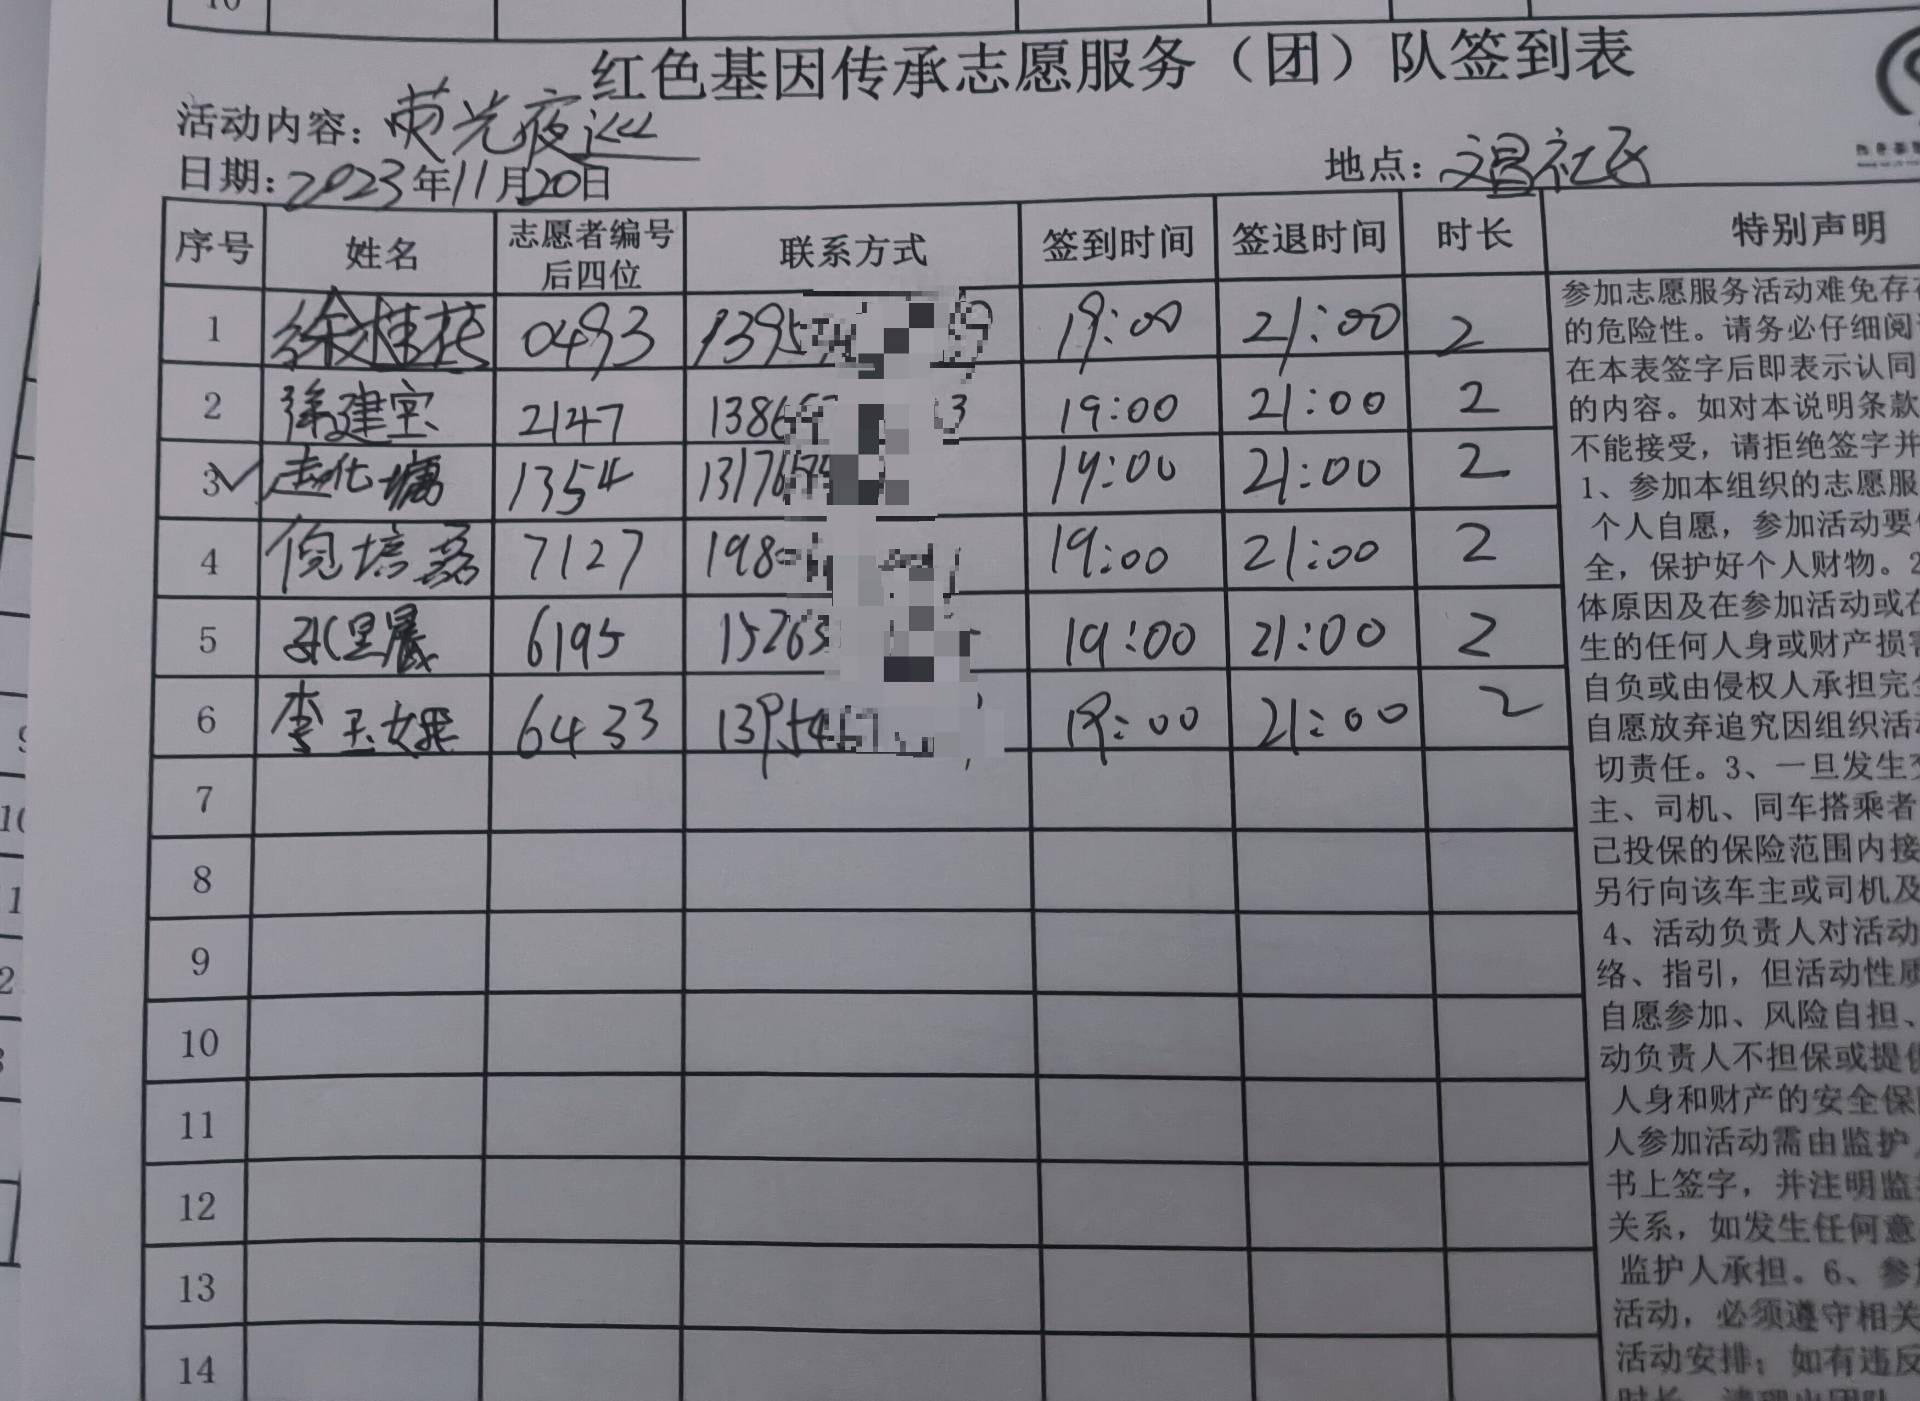 红色基因传承志愿服务（团）队签到表
活动内容：荧光夜巡
日期：2023年11月20日
地点：文昌社区
序号 姓名 志愿者编号后四位 联系方式 签到时间 签退时间 时长 特别声明
1 徐桂花 0493 1395 19:00 21:00 2
2 徐建宝 2147 13865 3 19:00 21:00 2
3 赵化墉 1354 13176 19:00 21:00 2
4 倪培磊 7127 198 19:00 21:00 2
5 孙里晨 6195 15263 19:00 21:00 2
6 李玉娥 6433 13954 19:00 21:00 2
7
8
9
10
11
12
13
14
参加志愿服务活动难免存在
的危险性。请务必仔细阅
在本表签字后即表示认同
的内容。如对本说明条款
不能接受，请拒绝签字并
1、参加本组织的志愿服
个人自愿，参加活动要
全，保护好个人财物。2
体原因及在参加活动或在
生的任何人身或财产损害
自负或由侵权人承担完全
自愿放弃追究因组织活动
切责任。3、一旦发生交
主、司机、同车搭乘者
已投保的保险范围内接
另行向该车主或司机及
4、活动负责人对活动
络、指引，但活动性质
自愿参加、风险自担、
动负责人不担保或提供
人身和财产的安全保
人参加活动需由监护
书上签字，并注明监
关系，如发生任何意
监护人承担。6、参加
活动，必须遵守相关
活动安排；如有违反